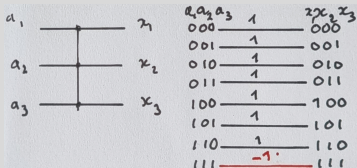 a₁ x₁
a₂ x₂
a₃ x₃
a₁a₂a₃ x₁x₂x₃
000 1 000
001 1 001
010 1 010
011 1 011
100 1 100
101 1 101
110 1 110
111 -1 111